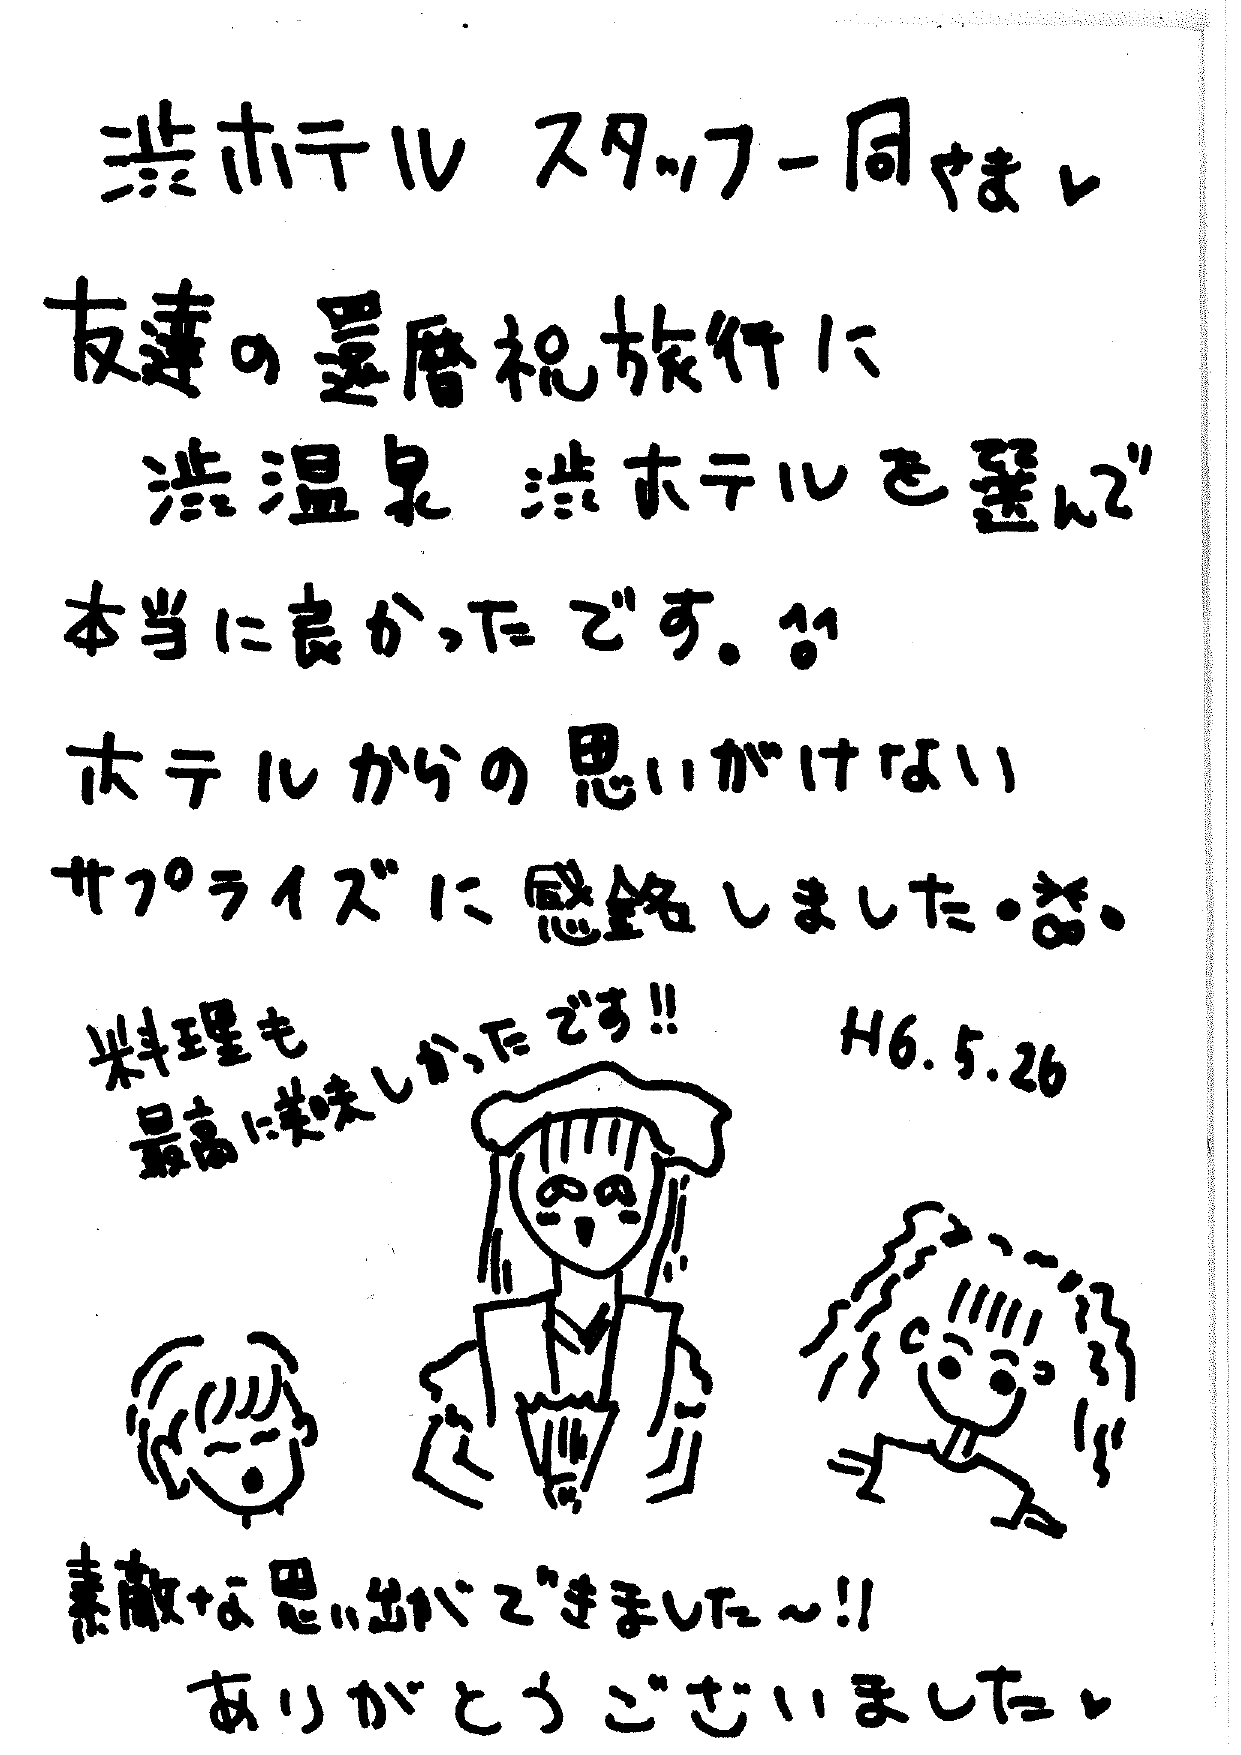 渋ホテル スタッフ一同さま♥
友達の還暦祝旅行に
渋温泉 渋ホテルを選んで
本当に良かったです。^^
ホテルからの思いがけない
サプライズに感銘しました。
料理も
最高に美味しかったです!!
H6.5.26
素敵な思い出ができました〜!!
ありがとうございました♥